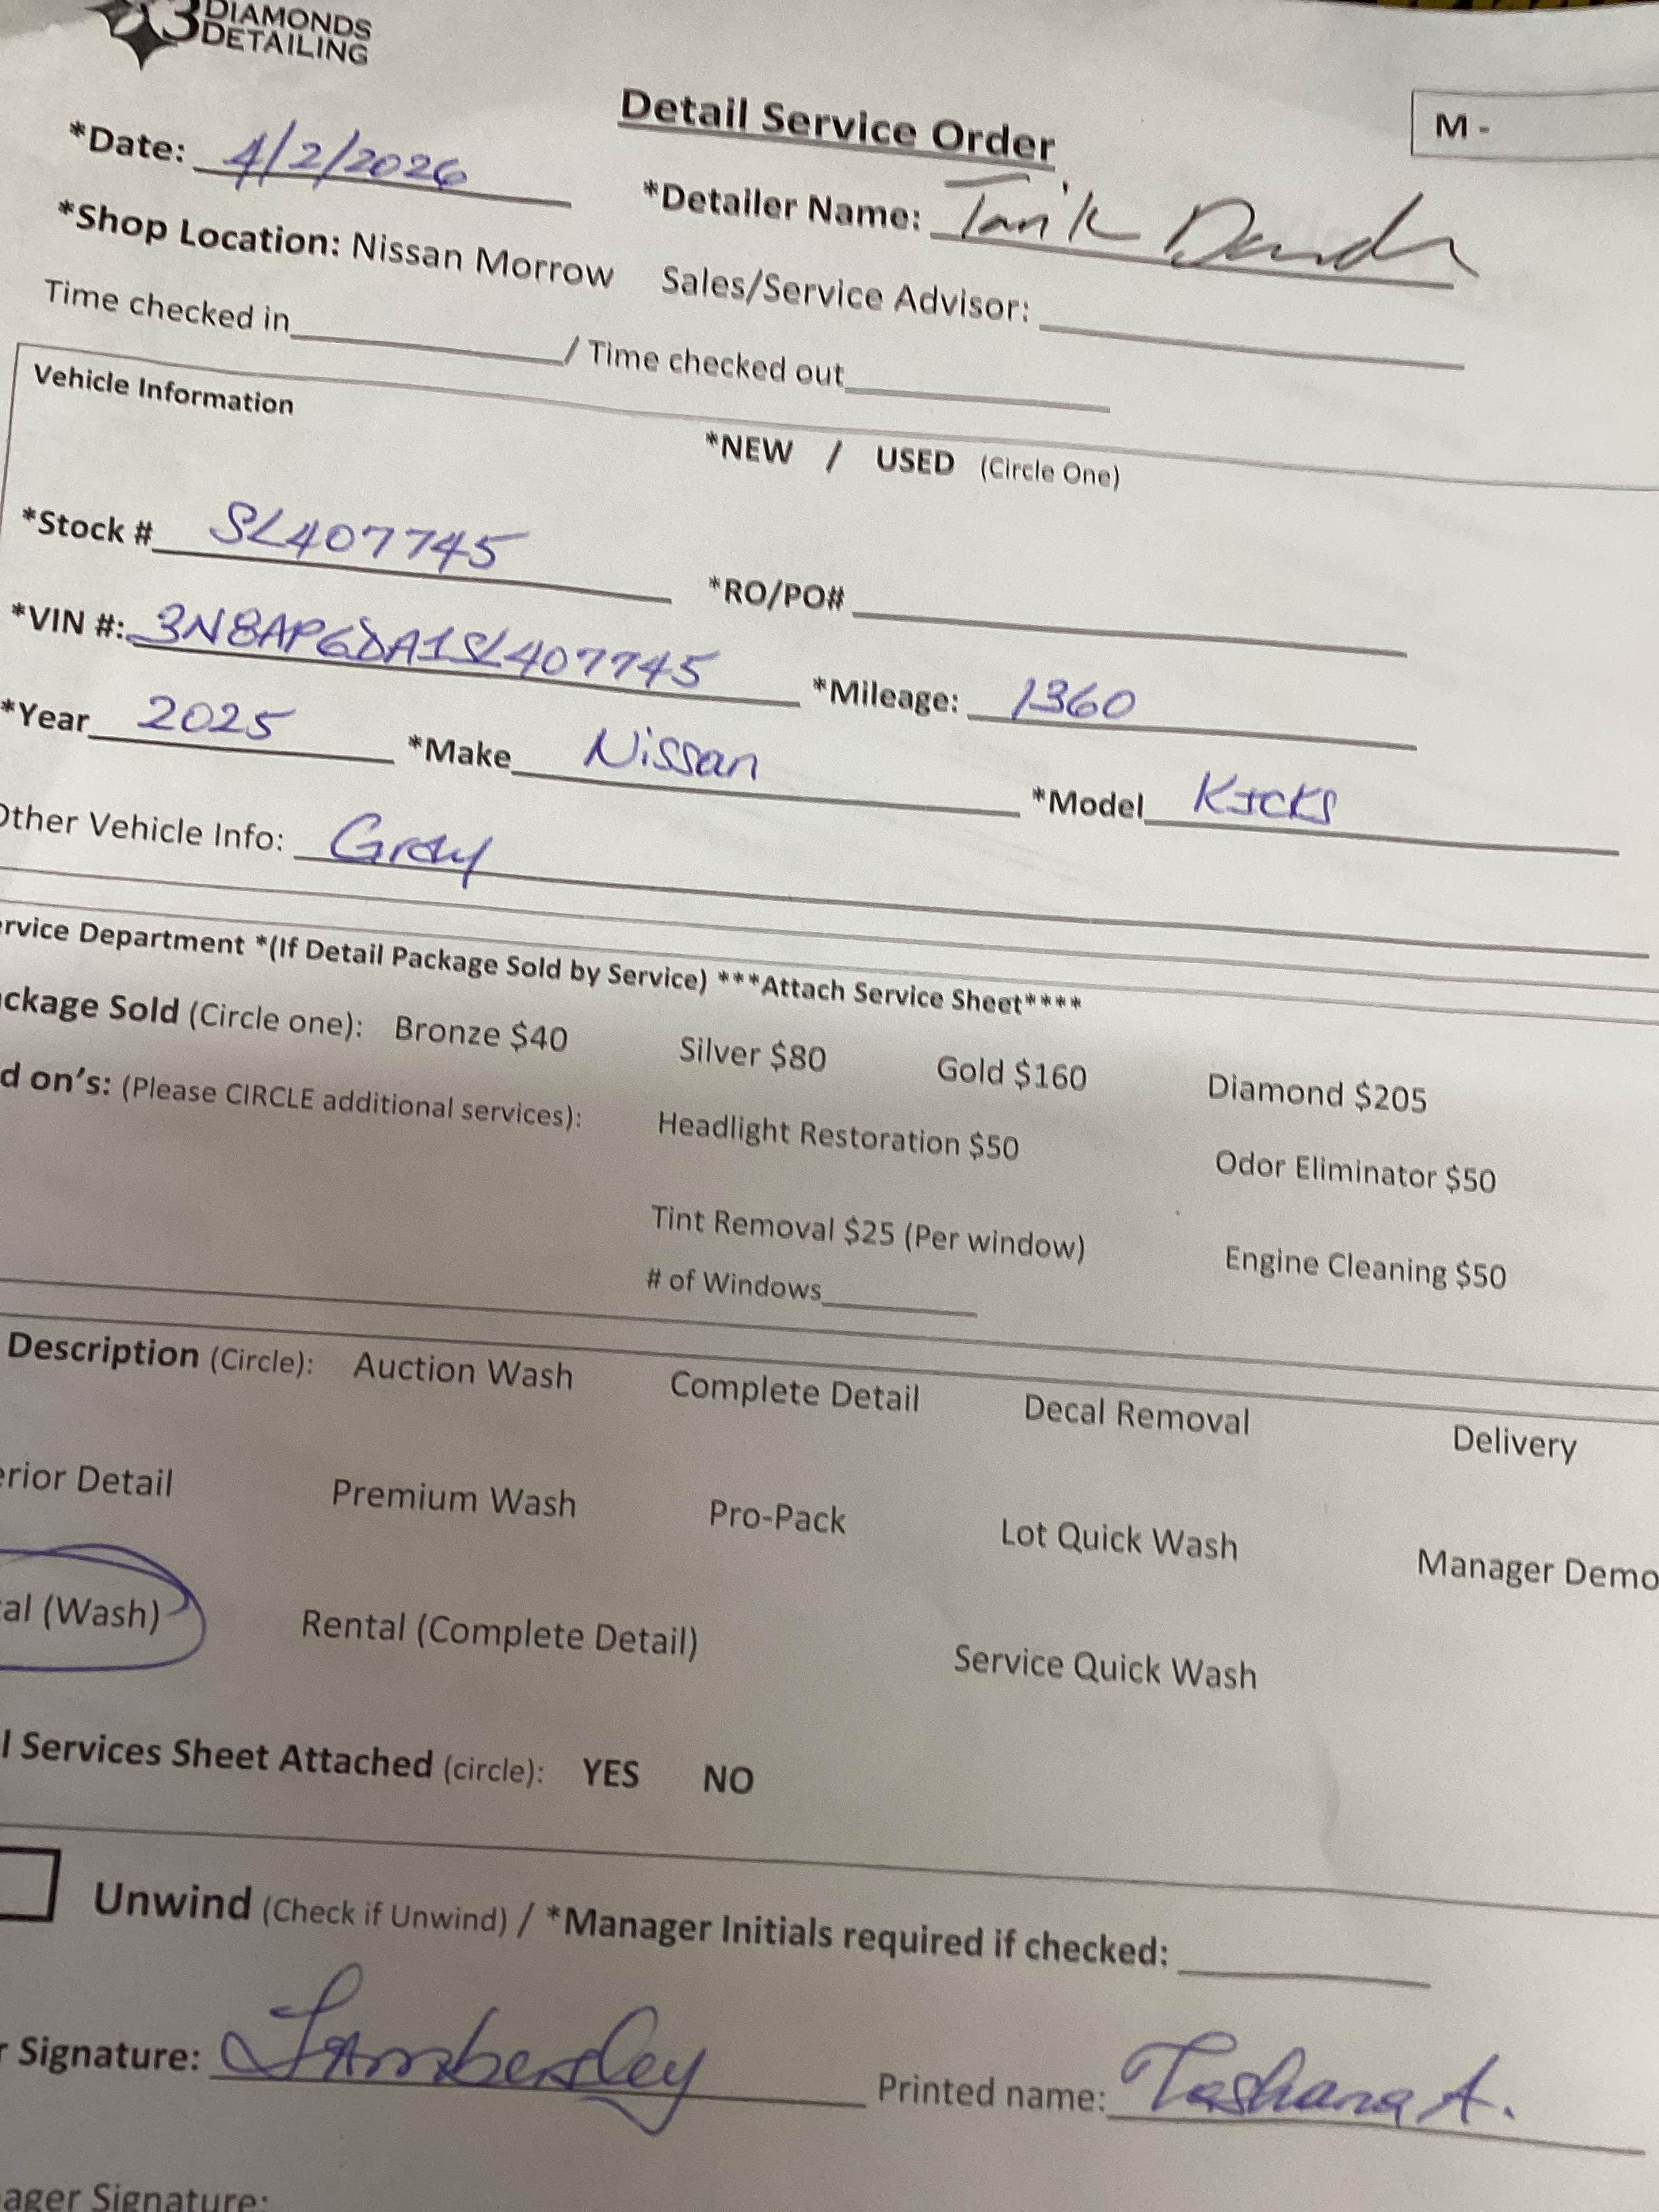 3 DIAMONDS
DETAILING
Detail Service Order
M -
*Date: 4/2/2026 *Detailer Name: Tarik
*Shop Location: Nissan Morrow Sales/Service Advisor:
Time checked in / Time checked out
Vehicle Information
*NEW / USED (Circle One)
*Stock # SL407745 *RO/PO#
*VIN #: 3N8AP6DA1SL407745 *Mileage: 1360
*Year 2025 *Make Nissan *Model KICKS
Other Vehicle Info: Gray
ervice Department *(If Detail Package Sold by Service) ***Attach Service Sheet****
ckage Sold (Circle one): Bronze $40 Silver $80 Gold $160 Diamond $205
d on's: (Please CIRCLE additional services): Headlight Restoration $50 Odor Eliminator $50
Tint Removal $25 (Per window) Engine Cleaning $50
# of Windows
Description (Circle): Auction Wash Complete Detail Decal Removal Delivery
erior Detail Premium Wash Pro-Pack Lot Quick Wash Manager Demo
tal (Wash) Rental (Complete Detail) Service Quick Wash
l Services Sheet Attached (circle): YES NO
Unwind (Check if Unwind) / *Manager Initials required if checked:
r Signature: Printed name: Tashana A.
ager Signature: